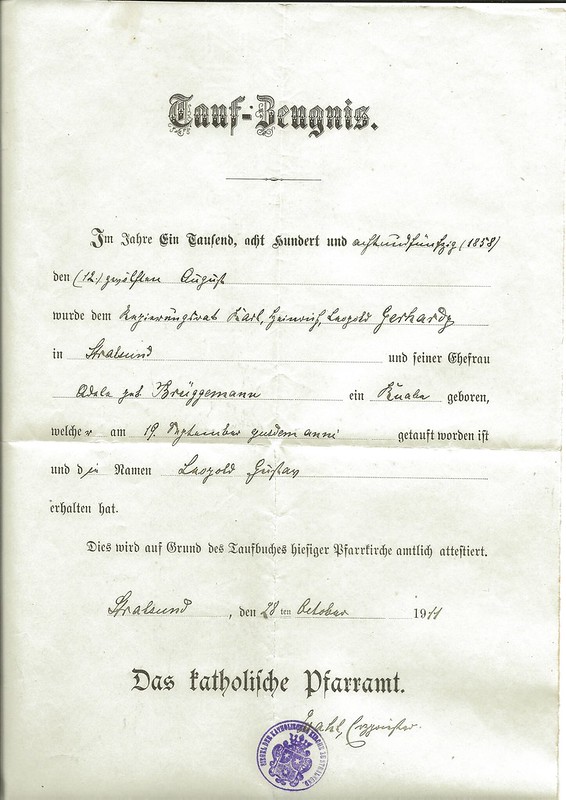 Tauf-Zeugnis.
Im Jahre Ein Tausend, acht Hundert und achtundfünfzig (1858)
den (12.) zwölften August
wurde dem Regierungsrat Karl, Heinrich, Leopold Gerhardy
in Stralsund und seiner Ehefrau
Adele geb. Brüggemann ein Knabe geboren,
welcher am 19. September ejusdem anni getauft worden ist
und die Namen Leopold Gustav
erhalten hat.
Dies wird auf Grund des Taufbuches hiesiger Pfarrkirche amtlich attestiert.
Stralsund, den 28 ten October 1911
Das katholische Pfarramt.
Erzpriester.
SIEGEL DER KATHOLISCHEN KIRCHE